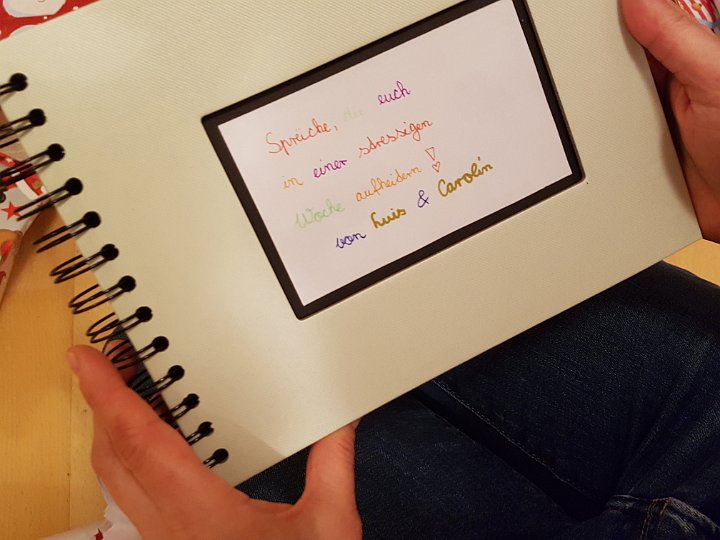 Sprüche, die euch
in einer stressigen
Woche aufheitern!
von Luis & Carolin